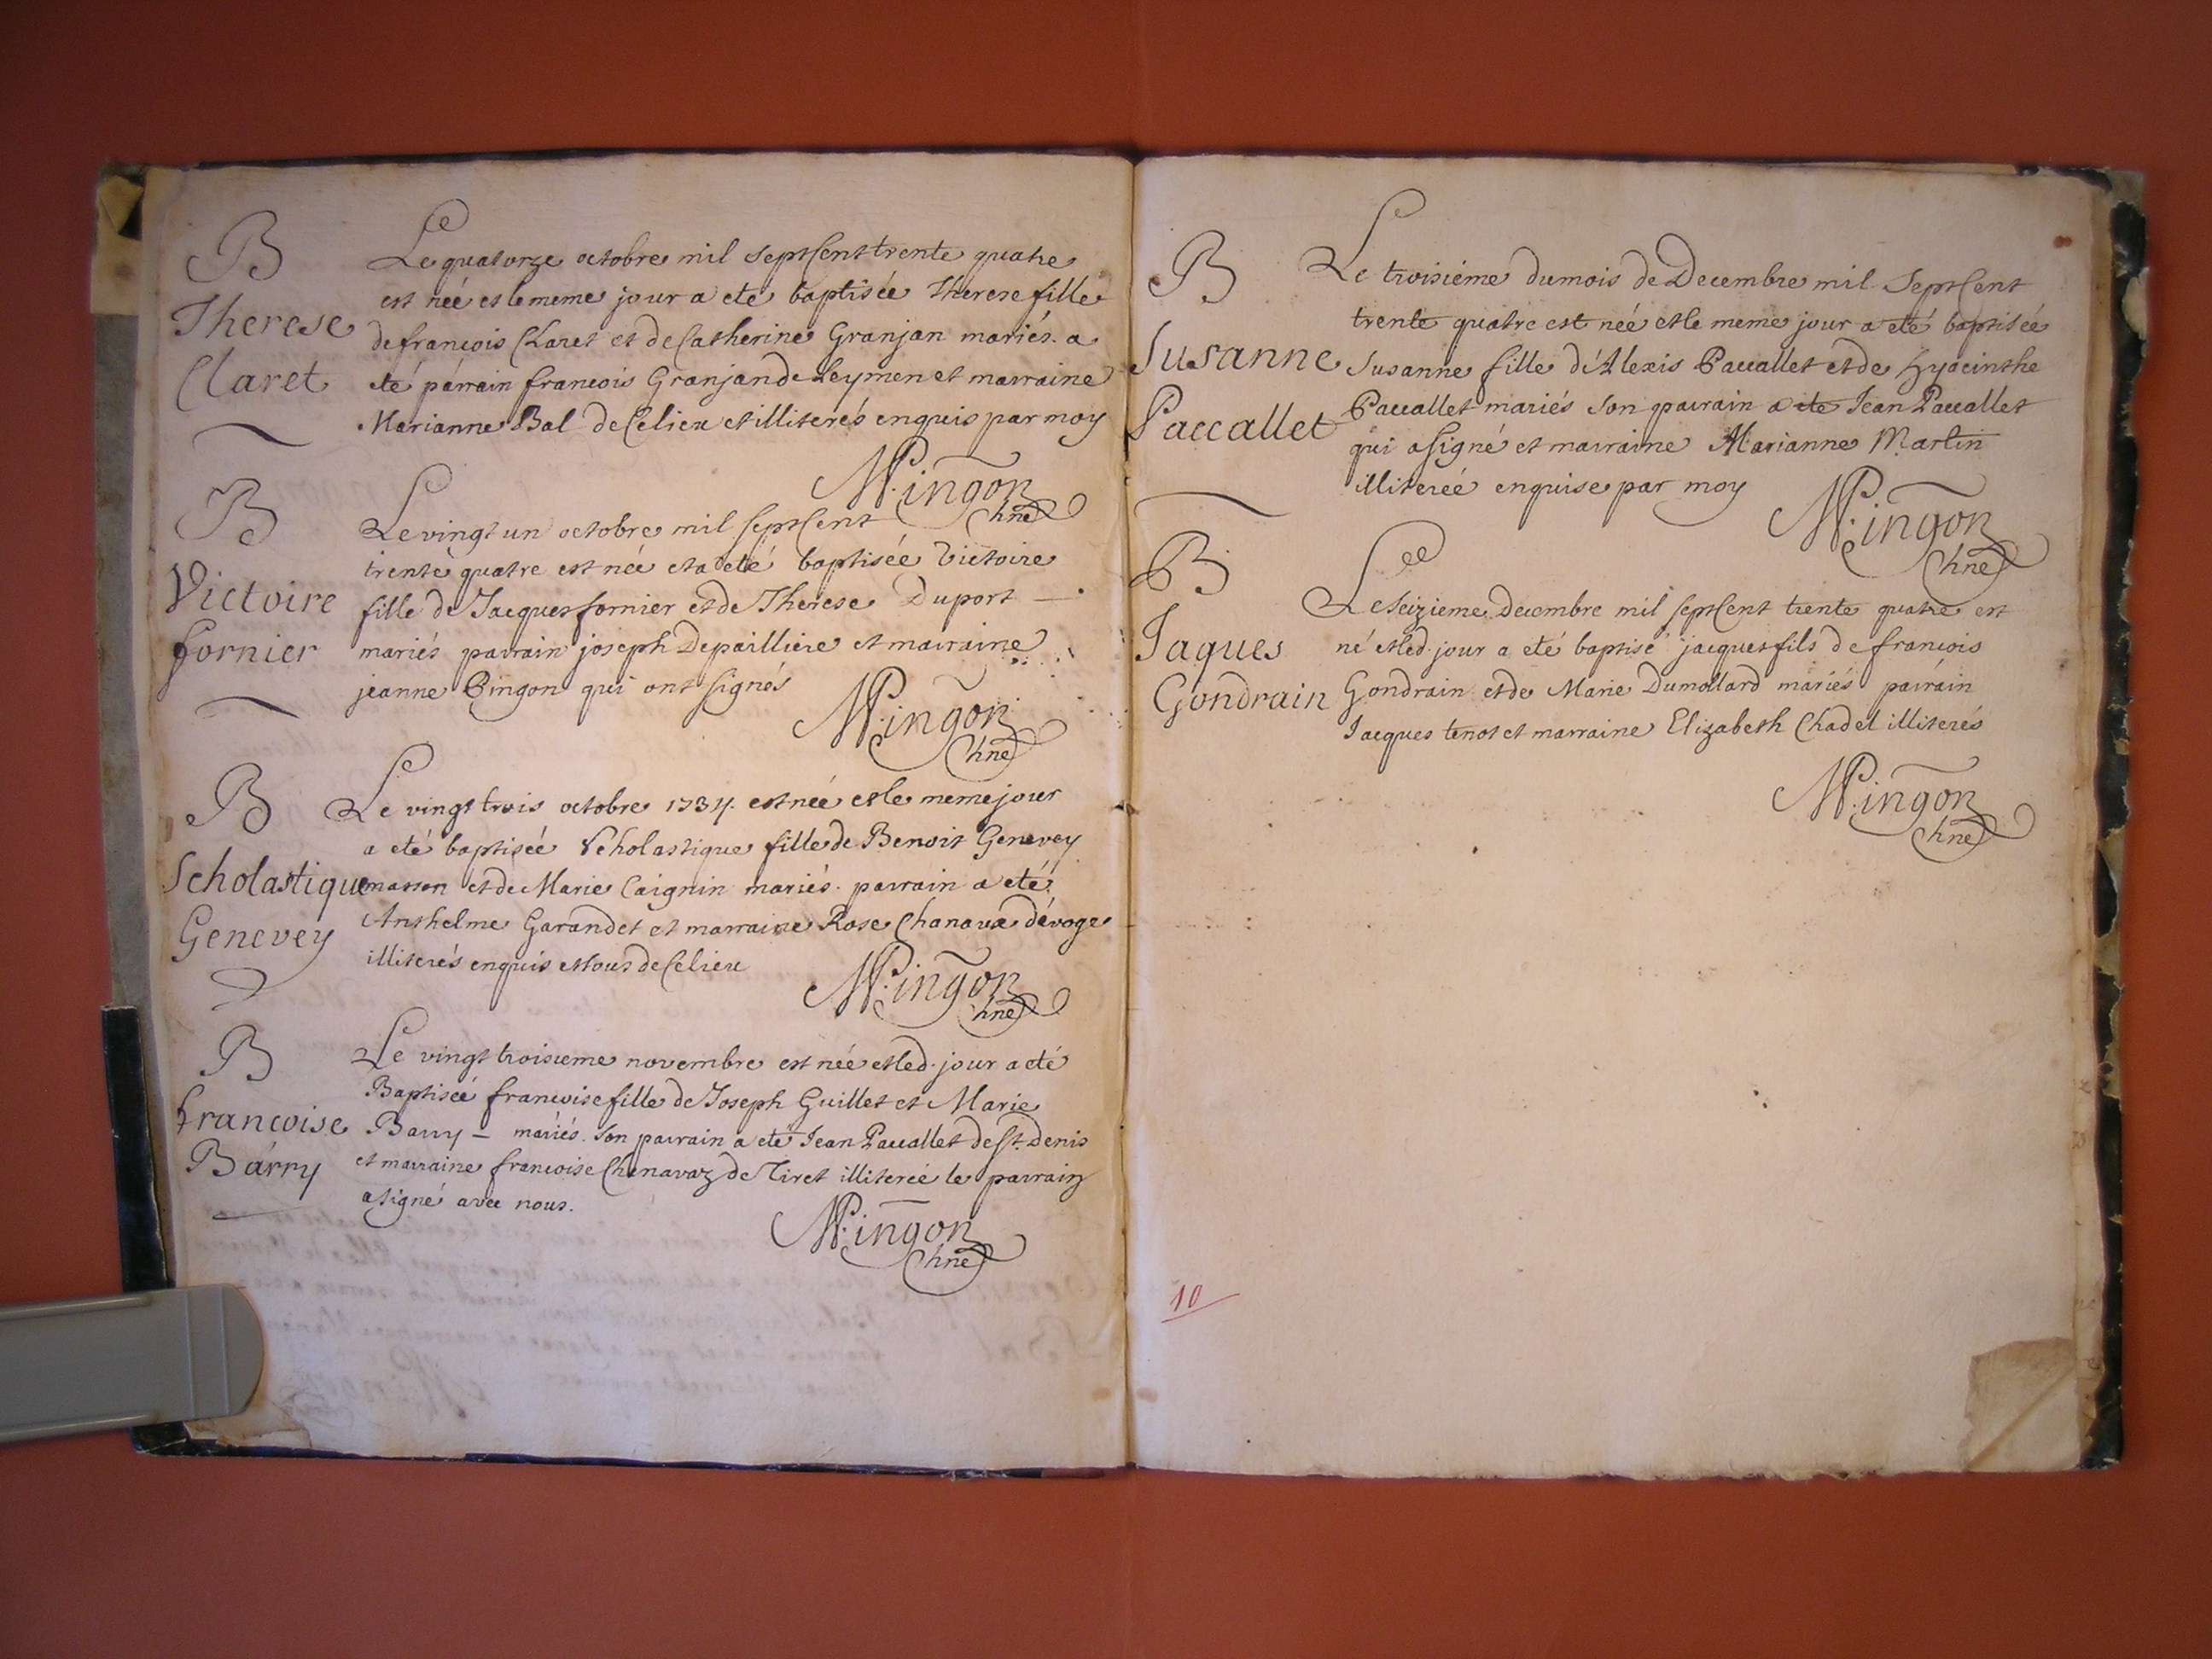 B
Therese
Claret
Le quatorze octobre mil sept Cent trente quatre
est née et le meme jour a eté baptisée Therese fille
de francois Claret et de Catherine Granjan mariés. a
eté parrain francois Granjan de Leymen et marraine
Marianne Bal de Celieu et illiterés enquis par moy
B
Victoire
fornier
Le vingt un octobre mil sept Cent
trente quatre est née et a eté baptisée Victoire
fille de Jacques fornier et de Therese Duport —
mariés parrain joseph Depailliere et marraine
jeanne Pingon qui ont signés
B
Scholastique
Genevey
Le vingt trois octobre 1734. est née et le meme jour
a eté baptisée Scholastique fille de Benoit Genevey
masson et de Marie Caignin mariés. parrain a eté
Anthelme Garandet et marraine Rose Chanavas dévoge
illiterés enquis et tous de Celieu
B
francoise
Barry
Le vingt troisieme novembre est née et led. jour a eté
Baptisée francoise fille de Joseph Guillet et Marie
Barry — mariés. Son parrain a eté Jean Paccallet de St. Denis
et marraine francoise Chenavaz de Tiret illiterée le parrain
a signé avec nous.
B
Susanne
Paccallet
Le troisiéme du mois de Decembre mil Sept Cent
trente quatre est née et le meme jour a eté baptisée
Susanne fille d'Alexis Paccallet et de Hyacinthe
Paccallet mariés Son parrain a ete Jean Paccallet
qui a signé et marraine Marianne Martin
illiterée enquise par moy
B
Jaques
Gondrain
Le Seizieme Decembre mil sept Cent trente quatre est
né et led. jour a eté baptisé jacques fils de francois
Gondrain et de Marie Dumollard mariés parrain
Jacques tenot et marraine Elizabeth Chadel illiterés
10